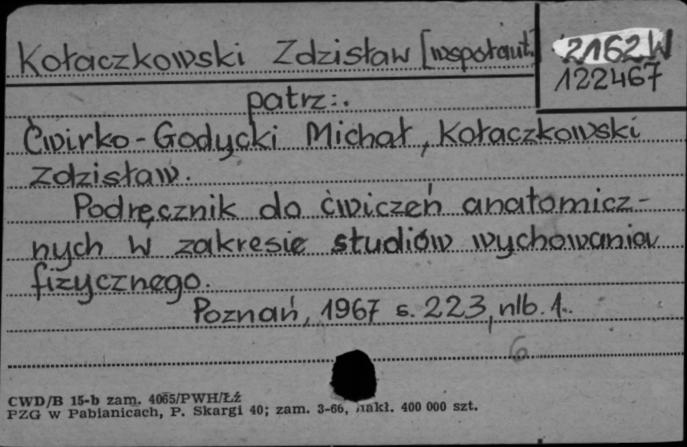 Kołaczkowski Zdzisław [współaut.]
2162W
122467
patrz:.
Ćwirko-Godycki Michał, Kołaczkowski
Zdzisław.
Podręcznik do ćwiczeń anatomicz-
nych w zakresie studiów wychowania
fizycznego.
Poznań, 1967 s. 223, nlb. 1.
6
CWD/B 15-b zam. 4065/PWH/Łź
PZG w Pabianicach, P. Skargi 40; zam. 3-66, nakł. 400 000 szt.